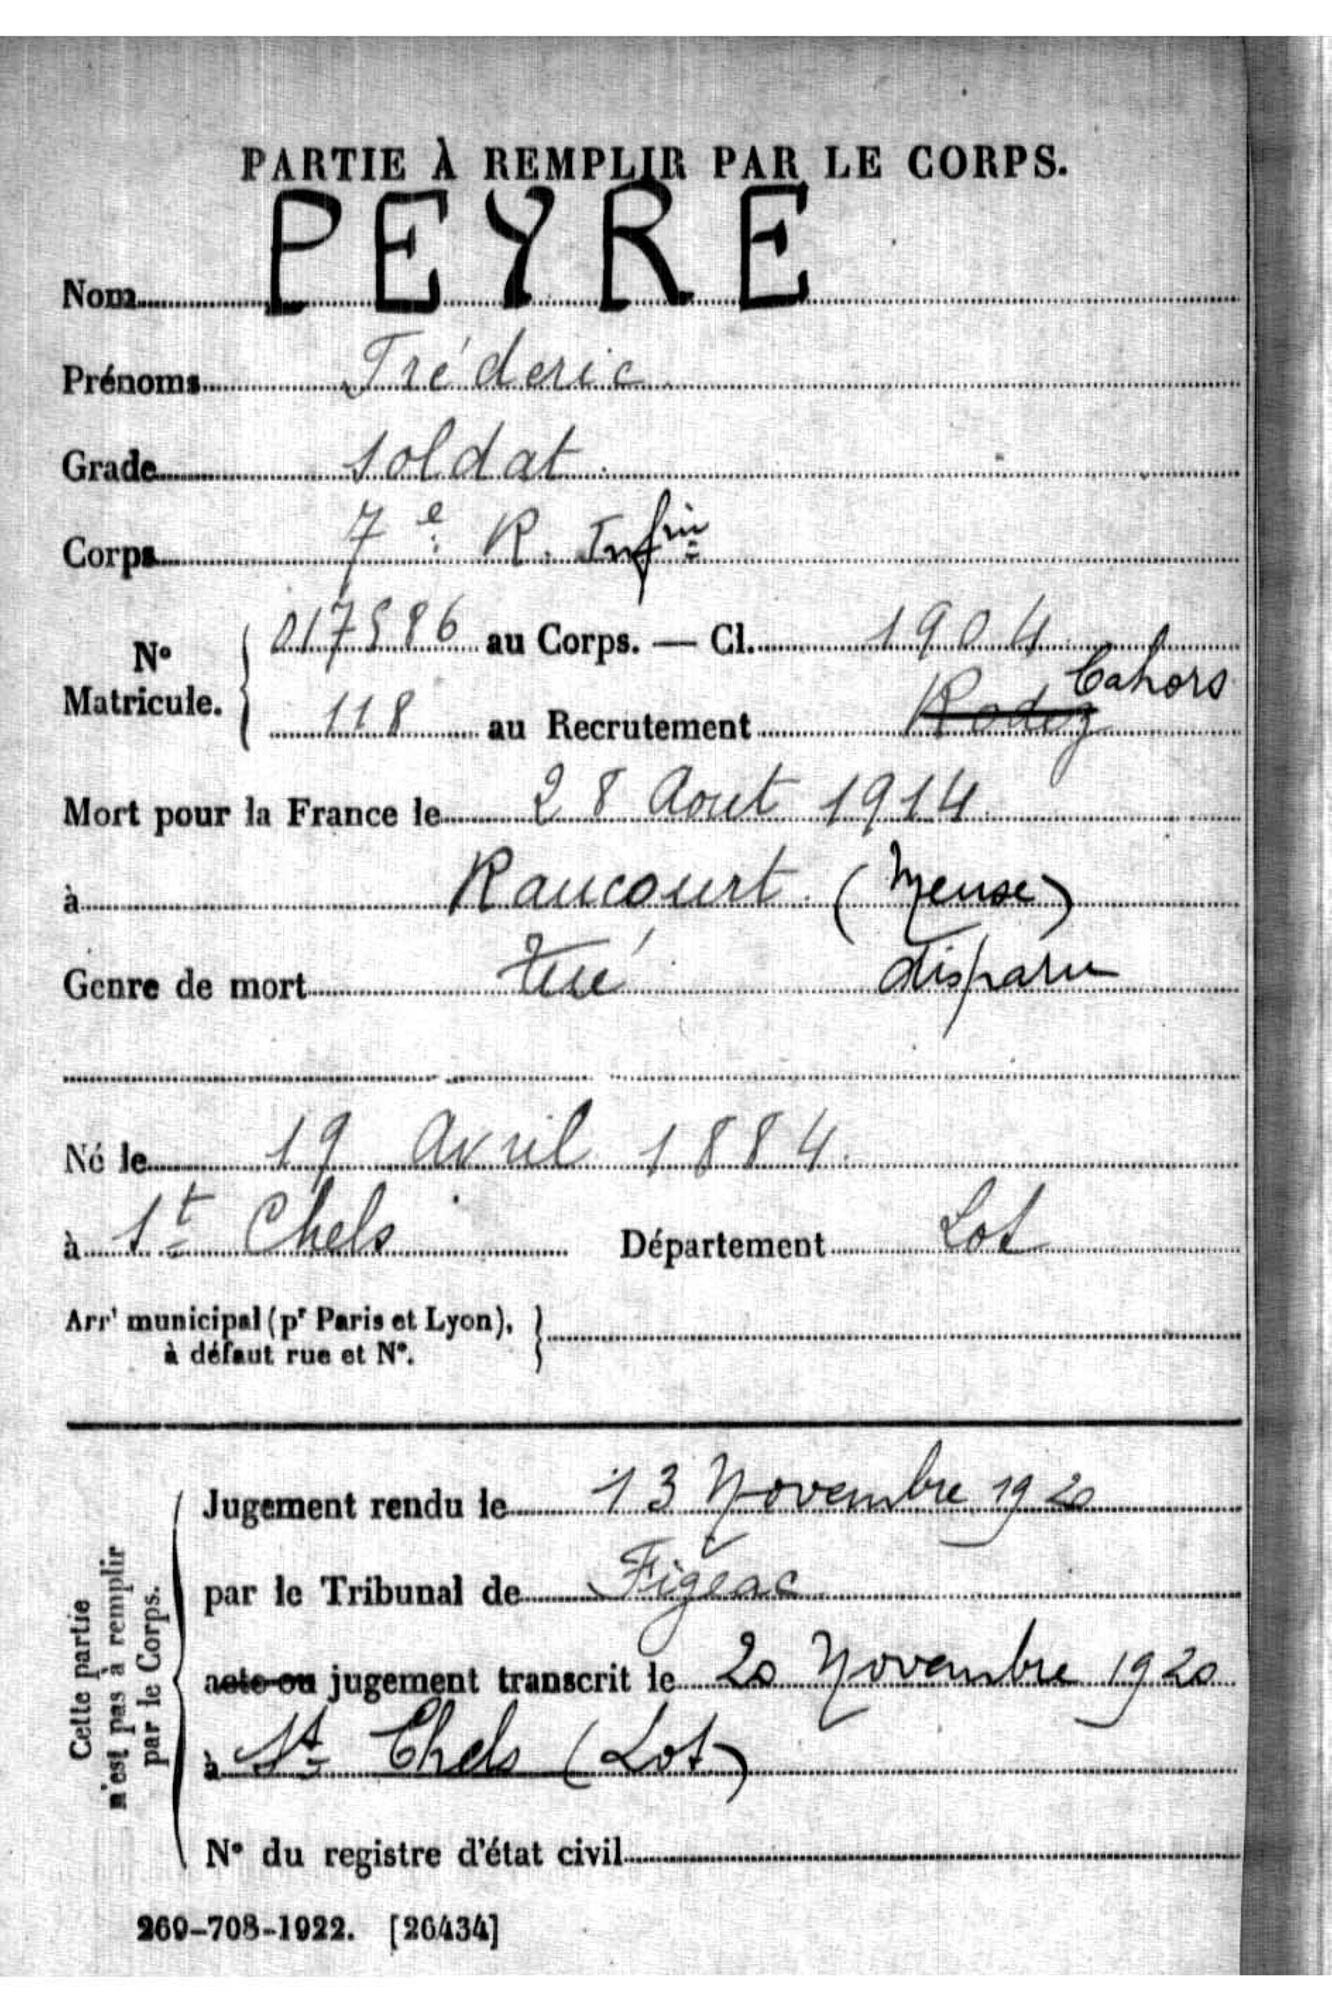 PARTIE À REMPLIR PAR LE CORPS.
Nom PEYRE
Prénoms Fréderic
Grade soldat
Corps 7e R. Infrie
N° Matricule. 017586 au Corps. — Cl. 1904
118 au Recrutement Rodez Cahors
Mort pour la France le 28 Aout 1914
à Raucourt (Meuse)
Genre de mort tué disparu
Né le 19 Avril 1884
à St Chels Département Lot
Arrt municipal (pr Paris et Lyon),
à défaut rue et N°.
Cette partie
n'est pas à remplir
par le Corps.
Jugement rendu le 13 Novembre 1920
par le Tribunal de Figeac
acte ou jugement transcrit le 20 Novembre 1920
à St Chels (Lot)
N° du registre d'état civil
269-708-1922. [26434]